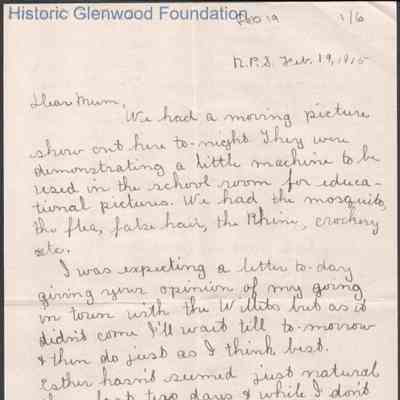 Historic Glenwood Foundation
Feb 19
1/6
N.P.S. Feb. 19, 1915
Dear Mum,
We had a moving picture
show out here to-night. They were
demonstrating a little machine to be
used in the school room for educa-
tional pictures. We had the mosquito,
the flea, false hair, the Rhine, crockery
etc.
I was expecting a letter to-day
giving your opinion of my going
in town with the Willits but as it
didn't come I'll wait till to-morrow
& then do just as I think best.
Esther hasn't seemed just natural
last two days & while I don't